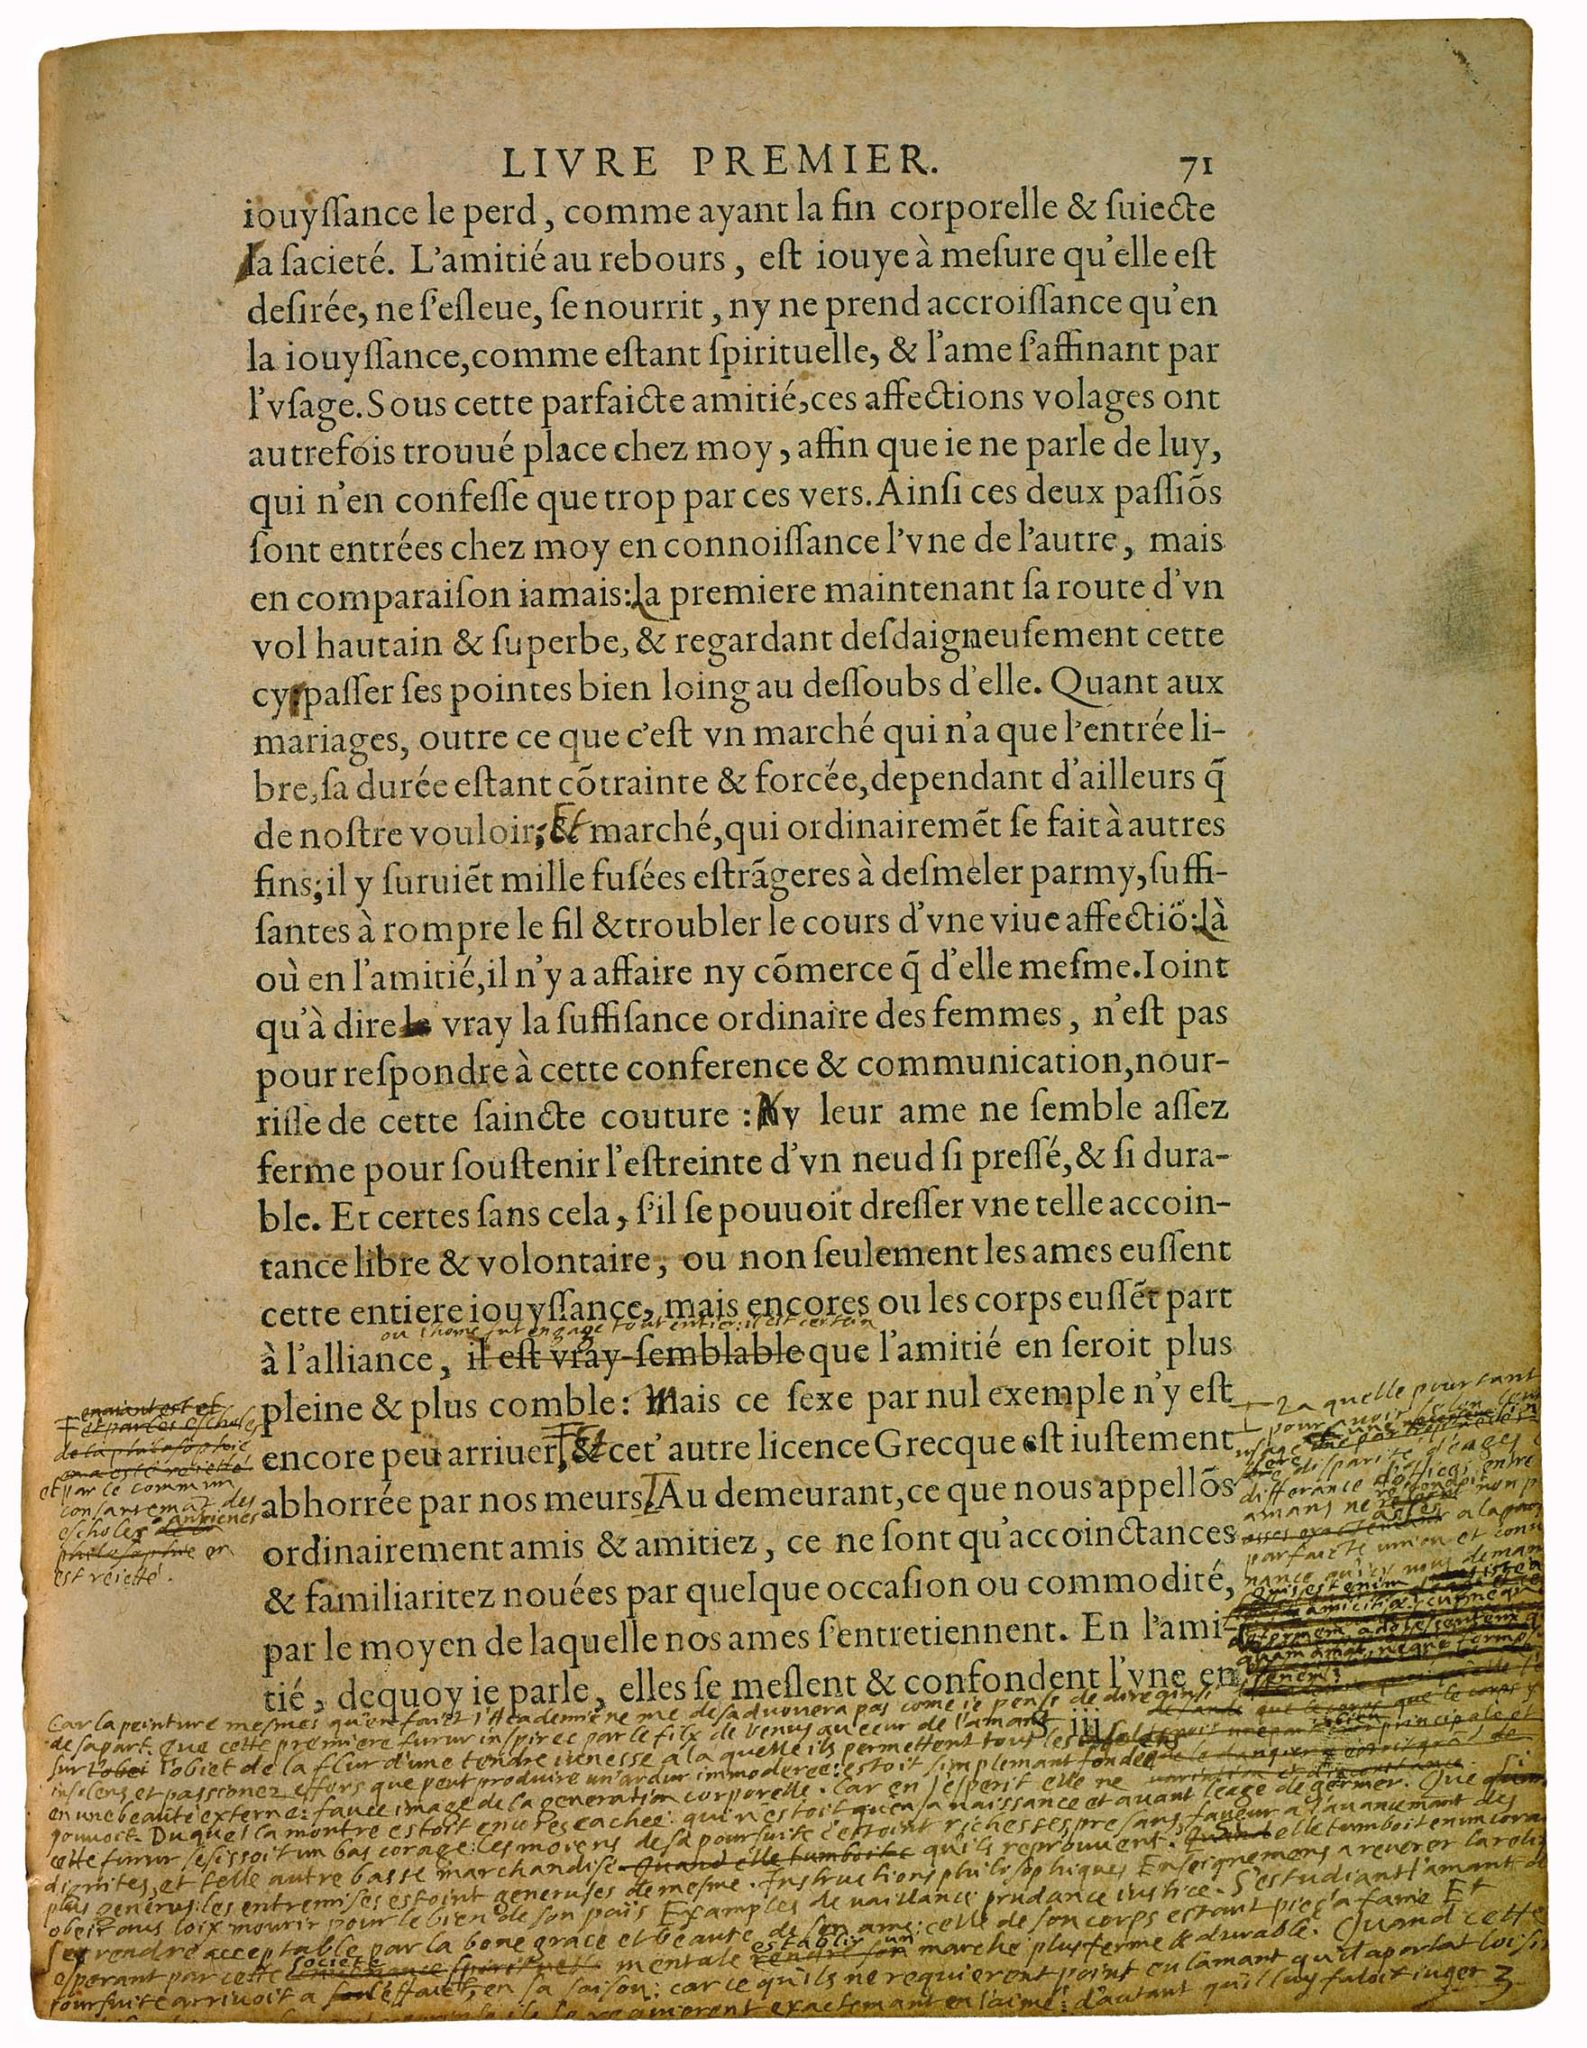 LIVRE PREMIER. 71
iouyſſance le perd, comme ayant la fin corporelle & ſuiecte
a ſacieté. L'amitié au rebours, eſt iouye à meſure qu'elle eſt
deſirée, ne s'eſleue, ſe nourrit, ny ne prend accroiſſance qu'en
la iouyſſance, comme eſtant ſpirituelle, & l'ame s'affinant par
l'vſage. Sous cette parfaicte amitié, ces affections volages ont
autrefois trouué place chez moy, affin que ie ne parle de luy,
qui n'en confeſſe que trop par ces vers. Ainſi ces deux paſſiõs
ſont entrées chez moy en connoiſſance l'vne de l'autre, mais
en comparaiſon iamais: la premiere maintenant ſa route d'vn
vol hautain & ſuperbe, & regardant deſdaigneuſement cette
cy paſſer ſes pointes bien loing au deſſoubs d'elle. Quant aux
mariages, outre ce que c'eſt vn marché qui n'a que l'entrée li-
bre, ſa durée eſtant cõtrainte & forcée, dependant d'ailleurs q̃
de noſtre vouloir; Et marché, qui ordinairemẽt ſe fait à autres
fins; il y ſuruiẽt mille fuſées eſtrãgeres à deſmeler parmy, ſuffi-
ſantes à rompre le fil & troubler le cours d'vne viue affectiõ: là
où en l'amitié, il n'y a affaire ny cõmerce q̃ d'elle meſme. Ioint
qu'à dire le vray la ſuffiſance ordinaire des femmes, n'eſt pas
pour reſpondre à cette conference & communication, nour-
riſſe de cette ſaincte couture: Ny leur ame ne ſemble aſſez
ferme pour ſouſtenir l'eſtreinte d'vn neud ſi preſſé, & ſi dura-
ble. Et certes ſans cela, s'il ſe pouuoit dreſſer vne telle accoin-
tance libre & volontaire, ou non ſeulement les ames euſſent
cette entiere iouyſſance, mais encores ou les corps euſſẽt part
ou l'home fut engagé tout entier: il est certein
à l'alliance, il eſt vray-ſemblable que l'amitié en ſeroit plus
pleine & plus comble: Mais ce ſexe par nul exemple n'y eſt
encore peu arriuer, Et cet' autre licence Grecque eſt iuſtement
abhorrée par nos meurs. Au demeurant, ce que nous appellõs
ordinairement amis & amitiez, ce ne ſont qu'accoinctances
& familiaritez nouées par quelque occaſion ou commodité,
par le moyen de laquelle nos ames s'entretiennent. En l'ami-
tié, dequoy ie parle, elles ſe meſlent & confondent l'vne en
S iij
et par les escholes
de la philosophie
en a esté reietté
et par le commun
consantemãt des
escholes antienes
philosophie en
est reietté.
La quelle pourtant
pour avoir selon leur
usage une
disparité d'eages
differance d'offices entre
amans ne respondoit non
assez a la
parfaicte union et
nance qu'icy nous
Car la peinture mesmes qu'en faict l'Academie ne me desadvouera pas come ie pense de dire ainsi
de sa part. Que cette premiere furur inspiree par le filx de Venus au ceur de l'amant
sur l'obiet de la fleur d'une tendre iunesse a la quelle ils permettent tous les
insolens et passionez effors que peut produire un'ardur immoderee: estoit simplemant fondee
en une beaute externe: fauce image de la generation corporelle. Car en l'esperit elle ne
pouvoit. Duquel la montre estoit encores cachee: qui n'estoit qu'en sa naissance et avant l'eage de germer. Que si
cette furur sesissoit un bas corage: les moiens de sa poursuite c'estoint richesses presans faveur a l'avancemant des
dignites, et telle autre basse marchandise qu'ils reprouvent. Si elle tumboit en un corage
plus generus: les entremises estoint generuses de mesme. Instructions philosophiques Enseignemens a reverer la
obeir aus loix mourir pour le bien de son païs Examples de vaillance prudance iustice. S'estudiant l'amant de
se rendre acceptable par la bone grace et beaute de son ame: celle de son corps estant pieç'a fanie Et
esperant par cette societé mentale establir un marche plus ferme & durable. Quand cette
poursuite arrivoit a l'effaict, en sa saison: car ce qu'ils ne requierent point en l'amant qu'il aportat loisir
requierent exactemant en l'aimé: d'autant qu'il luy faloit iuger